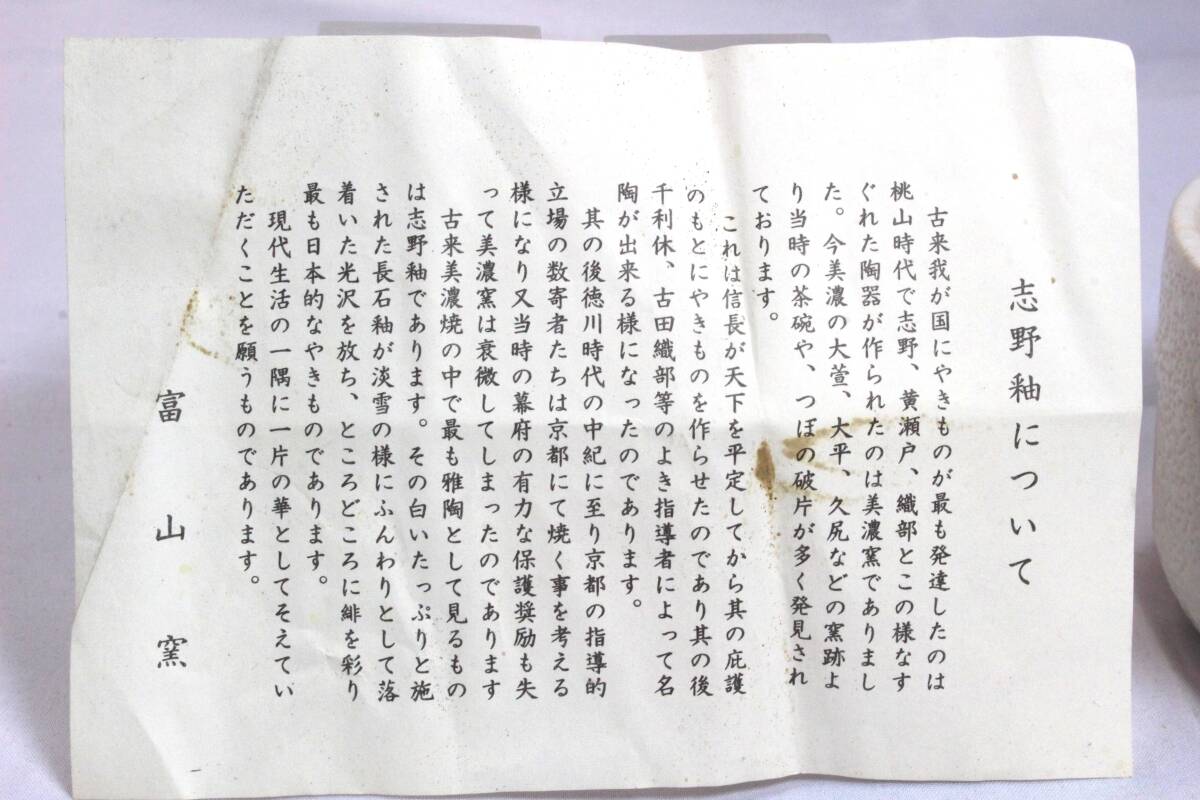 志野釉について
古来我が国にやきものが最も発達したのは
桃山時代で志野、黄瀬戸、織部とこの様なす
ぐれた陶器が作られたのは美濃窯でありまし
た。今美濃の大萱、大平、久尻などの窯跡よ
り当時の茶碗や、つぼの破片が多く発見され
ております。
これは信長が天下を平定してから其の庇護
のもとにやきものを作らせたのであり其の後
千利休、古田織部等のよき指導者によって名
陶が出来る様になったのであります。
其の後徳川時代の中紀に至り京都の指導的
立場の数寄者たちは京都にて焼く事を考える
様になり又当時の幕府の有力な保護奨励も失
って美濃窯は衰微してしまったのであります
古来美濃焼の中で最も雅陶として見るもの
は志野釉であります。その白いたっぷりと施
された長石釉が淡雪の様にふんわりとして落
着いた光沢を放ち、ところどころに緋を彩り
最も日本的なやきものであります。
現代生活の一隅に一片の華としてそえてい
ただくことを願うものであります。
富山窯